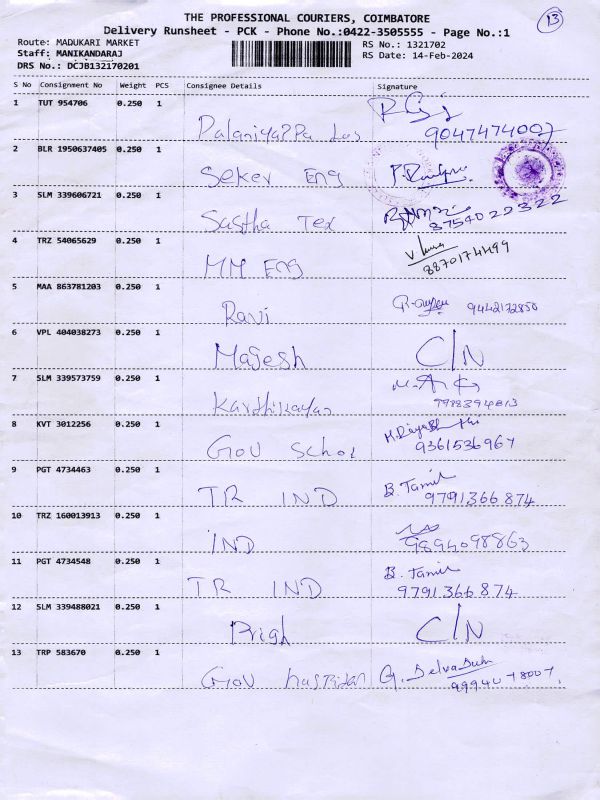 13
THE PROFESSIONAL COURIERS, COIMBATORE
Delivery Runsheet - PCK - Phone No.:0422-3505555 - Page No.:1
Route: MADUKARI MARKET
RS No.: 1321702
Staff: MANIKANDARAJ
RS Date: 14-Feb-2024
DRS No.: DCJB132170201
S No Consignment No Weight PCS Consignee Details Signature
1 TUT 954706 0.250 1
9047474007
2 BLR 1950637405 0.250 1 Seker Eng
3 SLM 339606721 0.250 1 Sastha Tex 8754022322
4 TRZ 54065629 0.250 1 MM Eng 8870174499
5 MAA 863781203 0.250 1 Ravi 9442172850
6 VPL 404038273 0.250 1 Majesh C/N
7 SLM 339573759 0.250 1
8 KVT 3012256 0.250 1 Gov Schol 9361536967
9 PGT 4734463 0.250 1 TR IND B. Tamil 9791366874
10 TRZ 160013913 0.250 1 IND 9894098863
11 PGT 4734548 0.250 1 TR IND B. Tamil 9791366874
12 SLM 339488021 0.250 1 Brigh C/N
13 TRP 583670 0.250 1 Gov G. Selva